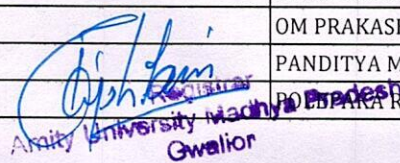 OM PRAKASH
PANDITYA M
Registrar
Amity University Madhya Pradesh
Gwalior